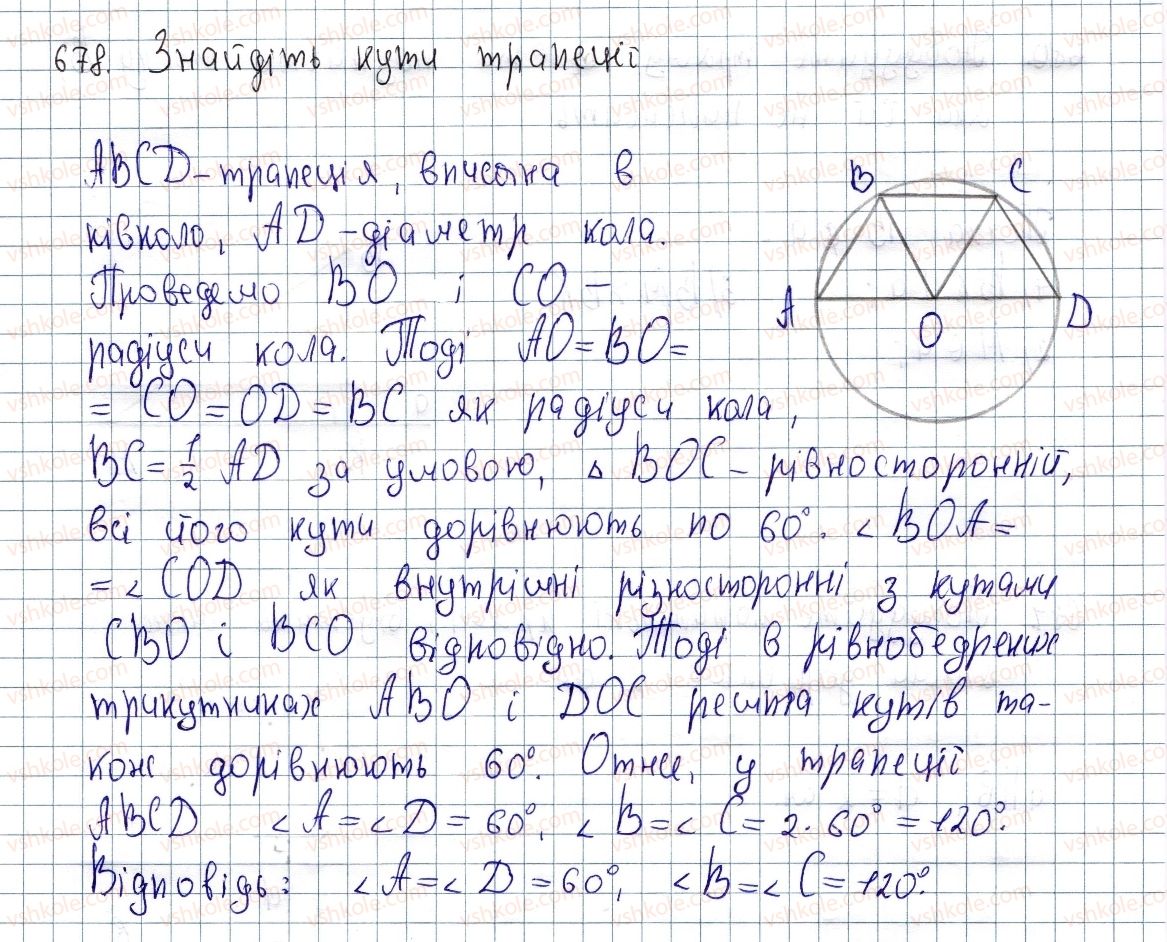 678. Знайдіть кути трапеції
ABCD - трапеція, вписана в
півколо, AD - діаметр кола.
Проведемо BO і CO -
радіуси кола. Тоді AO = BO =
= CO = OD = BC як радіуси кола,
BC = 1/2 AD за умовою, △ BOC - рівносторонній,
всі його кути дорівнюють по 60°. ∠ BOA =
= ∠ COD як внутрішні різносторонні з кутами
CBO і BCO відповідно. Тоді в рівнобедрених
трикутниках ABO і DOC решта кутів та-
кож дорівнюють 60°. Отже, у трапеції
ABCD ∠ A = ∠ D = 60°, ∠ B = ∠ C = 2 · 60° = 120°.
Відповідь: ∠ A = ∠ D = 60°, ∠ B = ∠ C = 120°.
B C
A O D
vshkole.com